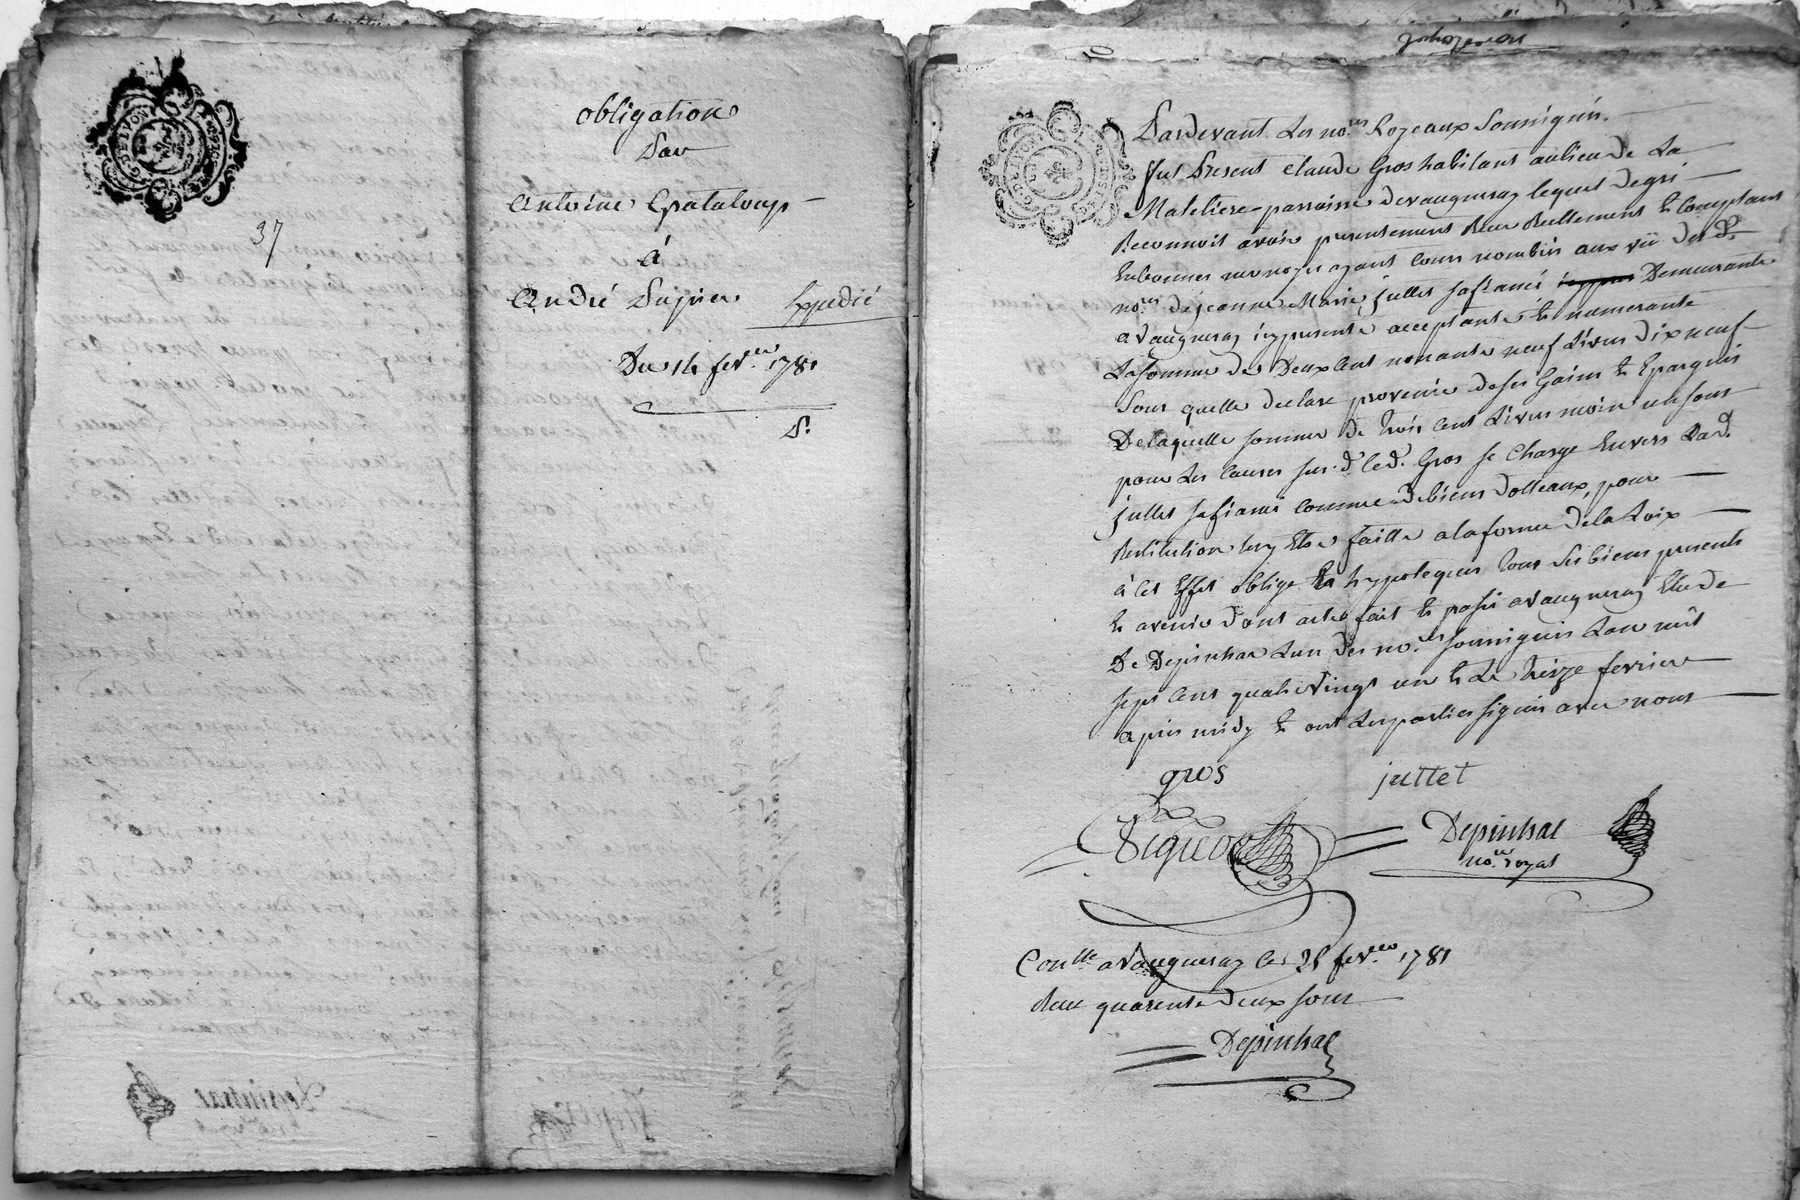 obligation
Par
Antoine Grataloup
à
André Dupin Expedié
Du 14 fev.er 1781
37
Pardevant Les no.res Royaux Soussignés.
fut Present Claude Gros habitant au lieu de La
Mateliere parroisse de vaugneray lequel de gré
Reconnoit avoir presentement Receu Reellement et Comptant
En bonnes monoyes ayant Cours nombrés aux vü des d.
no.res de jeanne Marie jullet sa fiancé Demeurante
a vaugneray icy presente acceptante et numerante
La somme de Deux Cent nonante neuf Livres dix neuf
Sous quelle declare provenir de ses Gains et Epargnes
De laquelle somme de trois Cent Livres moin un sous
pour Les Causes sus. d. le d. Gros se Charge Envers Lad.
jullet sa fiancé comme de biens dotteaux, pour
Restitution luy Etre faitte a la forme de la Loix
à cet Effet oblige et hypoteques tous ses biens presents
Et avenir dont acte fait et passé a vaugneray Etude
De Depinhac L'un des no.res soussignés L'an mil
sept Cent quatrevingt un et Le treize fevrier
après midy et ont Les parties signés avec nous
gros jullet
Depinhac
no.re royal
Con.lle a Vaugneray le 28 fev.er 1781
Receu quarente deux sous
Depinhac